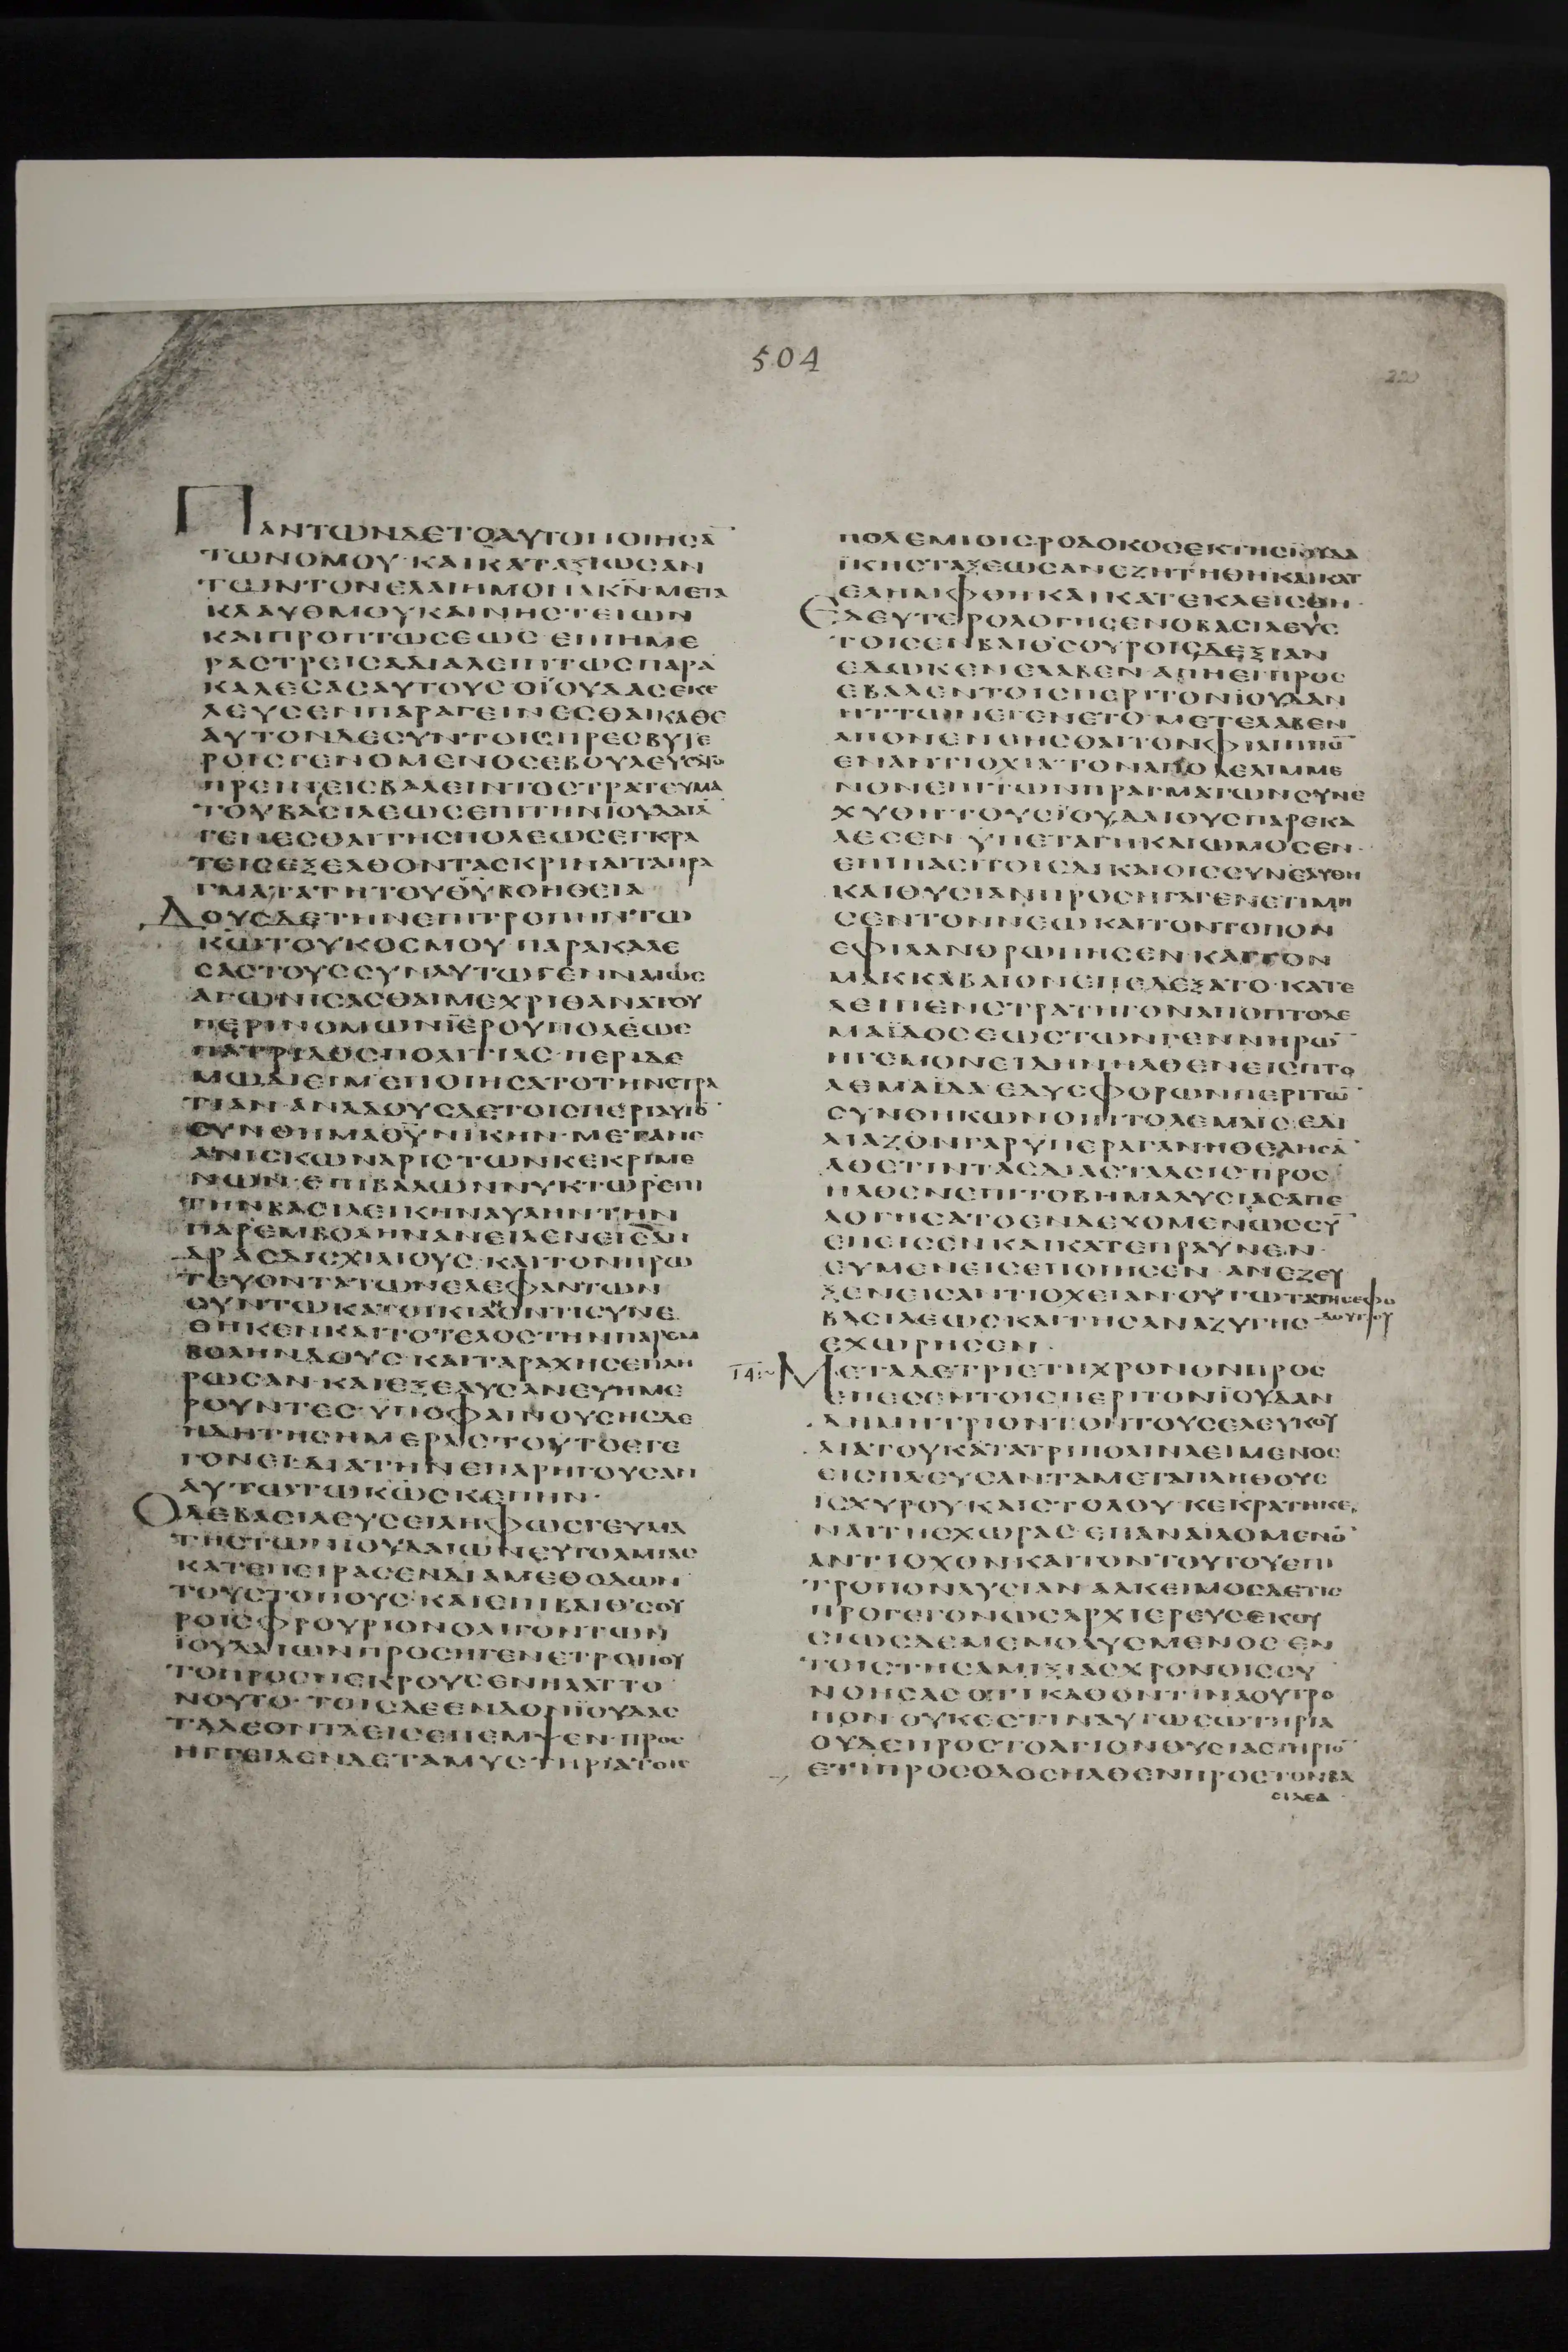 504
220
ΠΑΝΤΩΝΔΕΤΟΑΥΤΟΠΟΙΗСΑ̅
ΤΩΝΟΜΟΥ·ΚΑΙΚΑΤΑΞΙΩСΑΝ
ΤΩΝΤΟΝΕΛΑΙΗΜΟΝΑΚ̅Ν̅ΜΕΤΑ
ΚΛΑΥΘΜΟΥΚΑΙΝΗСΤΕΙΩΝ
ΚΑΙΠΡΟΠΤΩСΕΩС ΕΠΙΗΜΕ
ΡΑСΤΡΕΙСΑΔΙΑΛΕΙΠΤΩСΠΑΡΑ
ΚΑΛΕСΑСΑΥΤΟΥС·ΟΪΟΥΔΑСΕΚΕ
ΛΕΥСΕΝΠΑΡΑΓΕΙΝΕСΘΑΙΚΑΘΕ
ΑΥΤΟΝΔΕСΥΝΤΟΙСΠΡΕСΒΥΤΕ
ΡΟΙСΓΕΝΟΜΕΝΟСΕΒΟΥΛΕΥСΑΤΟ
ΠΡΕΙΝΕΙСΒΑΛΕΙΝΤΟСΤΡΑΤΕΥΜΑ
ΤΟΥΒΑСΙΛΕΩСΕΠΙΤΗΝΪΟΥΔΑΙΑ̅
ΓΕΝΕСΘΑΙΤΗСΠΟΛΕΩСΕΓΚΡΑ
ΤΕΙСΕΞΕΛΘΟΝΤΑСΚΡΙΝΑΙΤΑΠΡΑ
ΓΜΑΤΑΤΗΤΟΥΘ̅Υ̅ΒΟΗΘΕΙΑ
ΔΟΥСΔΕΤΗΝΕΠΙΤΡΟΠΗΝΤΩ
Κ̅Ω̅ΤΟΥΚΟСΜΟΥ·ΠΑΡΑΚΑΛΕ
СΑСΤΟΥССΥΝΑΥΤΩΓΕΝΝΑΙΩС
ΑΓΩΝΙСΑСΘΑΙΜΕΧΡΙΘΑΝΑΤΟΥ
ΠΕΡΙΝΟΜΩΝΪΕΡΟΥΠΟΛΕΩС
ΠΑΤΡΙΔΟСΠΟΛΙΤΙΑС·ΠΕΡΙΔΕ
ΜΩΔΙΕΙΜΕΠΟΙΗСΑΤΟΤΗΝСΤΡΑ
ΤΙΑΝ·ΑΝΑΔΟΥСΔΕΤΟΙСΠΕΡΙΑΥΤΟ̅
СΥΝΘΗΜΑΘ̅Υ̅ΝΙΚΗΝ·ΜΕΤΑΝΕ
ΑΝΙСΚΩΝΑΡΙСΤΩΝΚΕΚΡΙΜΕ
ΝΩΝ·ΕΠΙΒΑΛΩΝΝΥΚΤΩΡΕΠΙ
ΤΗΝΒΑСΙΛΕΙΚΗΝΑΥΛΗΝΤΗΝ
ΠΑΡΕΜΒΟΛΗΝΑΝΕΙΛΕΝΕΙСΑΝ
ΔΡΑСΔΙСΧΙΛΙΟΥС·ΚΑΙΤΟΝΠΡΩ
ΤΕΥΟΝΤΑΤΩΝΕΛΕΦΑΝΤΩΝ
СΥΝΤΩΚΑΤΟΙΚΙΑΟΝΤΙСΥΝΕ
ΘΗΚΕΝΚΑΙΤΟΤΕΛΟСΤΗΝΠΑΡΕΜ
ΒΟΛΗΝΔΕΟΥС·ΚΑΙΤΑΡΑΧΗСΕΠΛΗ
ΡΩСΑΝ·ΚΑΙΕΞΕΛΥСΑΝΕΥΗΜΕ
ΡΟΥΝΤΕС·ΥΠΟΦΑΙΝΟΥСΗСΔΕ
ΗΔΗΤΗСΗΜΕΡΑСΤΟΥΤΟΕΓΕ
ΓΟΝΕΙΔΙΑΤΗΝΕΠΑΡΗΓΟΥСΑΝ
ΑΥΤΩΤΩΚ̅Ω̅СΚΕΠΗΝ·
ΟΔΕΒΑСΙΛΕΥСΕΙΛΗΦΩСΓΕΥΜΑ
ΤΗСΤΩΝΙΟΥΔΑΙΩΝΕΥΤΟΛΜΙΑС
ΚΑΤΕΠΕΙΡΑСΕΝΔΙΑΜΕΘΟΔΩΝ
ΤΟΥСΤΟΠΟΥС·ΚΑΙΕΠΙΒΑΙΘСΟΥ
ΡΟΙСΦΡΟΥΡΙΟΝΟΛΙΓΟΝΤΩΝ
ΪΟΥΔΑΙΩΝΠΡΟСΗΓΕΝΕΤΡΟΠΟΥ
ΤΟΠΡΟСΠΕΚΡΟΥСΕΝΗΛΑΤΤΟ
ΝΟΥΤΟ·ΤΟΙСΔΕΕΝΔΟΝΪΟΥΔΑС
ΤΑΔΕΟΝΤΑΕΙСΕΠΕΜΨΕΝ·ΠΡΟС
ΗΓΓΕΙΛΕΝΔΕΤΑΜΥСΤΗΡΙΑΤΟΙС
ΠΟΛΕΜΙΟΙСΡΟΔΟΚΟСΕΚΤΗСΪΟΥΔΑ
ΪΚΗСΤΑΞΕΩСΑΝΕΖΗΤΗΘΗΚΑΙΚΑΤ
ΕΛΗΜΦΘΗΚΑΙΚΑΤΕΚΛΕΙСΘΗ·
ΕΔΕΥΤΕΡΟΛΟΓΗСΕΝΟΒΑСΙΛΕΥС
ΤΟΙСΕΝΒΑΙΘСΟΥΡΟΙСΔΕΞΙΑΝ
ΕΔΩΚΕΝΕΛΑΒΕΝ·ΑΠΗΕΙΠΡΟС
ΕΒΑΛΕΝΤΟΙСΠΕΡΙΤΟΝΪΟΥΔΑΝ
ΗΤΤΩΝΕΓΕΝΕΤΟ·ΜΕΤΕΛΑΒΕΝ
ΑΠΟΝΕΝΟΗСΘΑΙΤΟΝΦΙΛΙΠΠΟ̅
ΕΝΑΝΤΙΟΧΙΑ·ΤΟΝΑΠΟΛΕΛΙΜΜΕ
ΝΟΝΕΠΙΤΩΝΠΡΑΓΜΑΤΩΝСΥΝΕ
ΧΥΘΗ·ΤΟΥСΪΟΥΔΑΙΟΥСΠΑΡΕΚΑ
ΛΕСΕΝ·ΥΠΕΤΑΓΗΚΑΙΩΜΟСΕΝ·
ΕΠΙΠΑСΙΤΟΙСΔΙΚΑΙΟΙССΥΝΕΛΥΘΗ
ΚΑΙΘΥСΙΑΝΠΡΟСΗΓΑΓΕΝΕΤΙΜΗ
СΕΝΤΟΝΝΕΩΚΑΙΤΟΝΤΟΠΟΝ
ΕΦΙΛΑΝΘΡΩΠΗСΕΝ·ΚΑΙΤΟΝ
ΜΑΚΚΑΒΑΙΟΝΕΠΕΔΕΞΑΤΟ·ΚΑΤΕ
ΛΕΙΠΕΝСΤΡΑΤΗΓΟΝΑΠΟΠΤΟΛΕ
ΜΑΪΔΟСΕΩСΤΩΝΓΕΝΝΗΡΩ̅
ΗΓΕΜΟΝΕΙΔΗΝΗΛΘΕΝΕΙСΠΤΟ
ΛΕΜΑΪΔΑ·ΕΔΥСΦΟΡΩΝΠΕΡΙΤΩ̅
СΥΝΘΗΚΩΝΟΙΠΤΟΛΕΜΑΙС·ΕΔΙ
ΔΙΑΖΟΝΓΑΡΥΠΕΡΑΓΑΝΗΘΕΛΗСΑ̅
ΑΘΕΤΙΝΤΑСΔΙΑСΤΑΛСΙС·ΠΡΟС
ΗΛΘΕΝΕΠΙΤΟΒΗΜΑΛΥСΙΑСΑΠΕ
ΛΟΓΗСΑΤΟΕΝΔΕΧΟΜΕΝΩССΥ̅
ΕΠΕΙСΕΝΚΑΙΚΑΤΕΠΡΑΥΝΕΝ·
ΕΥΜΕΝΕΙСΕΠΟΙΗСΕΝ·ΑΝΕΖΕΥ
ΞΕΝΕΙСΑΝΤΙΟΧΕΙΑΝ·ΟΥΤΩΤΑΤΗСΕΦΟ
ΒΑСΙΛΕΩСΚΑΙΤΗСΑΝΑΖΥΓΗС ΔΟΥΤΟΥ
ΕΧΩΡΗСΕΝ·
14:~ ΜΕΤΑΔΕΤΡΙΕΤΗΧΡΟΝΟΝΠΡΟС
ΕΠΕСΕΝΤΟΙСΠΕΡΙΤΟΝΪΟΥΔΑΝ
ΔΗΜΗΤΡΙΟΝΤΟΝΤΟΥСΕΛΕΥΚΟΥ
ΔΙΑΤΟΥΚΑΤΑΤΡΙΠΟΛΙΝΛΕΙΜΕΝΟС
ΕΙСΠΛΕΥСΑΝΤΑΜΕΤΑΠΛΗΘΟΥС
ΙСΧΥΡΟΥΚΑΙСΤΟΛΟΥ·ΚΕΚΡΑΤΗΚΕ
ΝΑΙΤΗСΧΩΡΑС·ΕΠΑΝΑΙΛΟΜΕΝΟ̅
ΑΝΤΙΟΧΟΝΚΑΙΤΟΝΤΟΥΤΟΥΕΠΙ
ΤΡΟΠΟΝΛΥСΙΑΝ·ΑΛΚΕΙΜΟСΔΕΤΙС
ΠΡΟΓΕΓΟΝΩСΑΡΧΙΕΡΕΥСΕΚΟΥ
СΙΩСΔΕΜΕΜΟΛΥСΜΕΝΟС ΕΝ
ΤΟΙСΤΗСΑΜΙΞΙΑСΧΡΟΝΟΙССΥ
ΝΟΗСΑС ΟΤΙΚΑΘΟΝΤΙΝΑΟΥΤΡΟ
ΠΟΝ·ΟΥΚΕСΤΙΝΑΥΤΩСΩΤΗΡΙΑ
ΟΥΔΕΠΡΟСΤΟΑΓΙΟΝΘΥСΙΑСΤΗΡΙΟ̅
ΕΤΙΠΡΟСΟΔΟСΗΛΘΕΝΠΡΟСΤΟΝΒΑ
СΙΛΕΑ